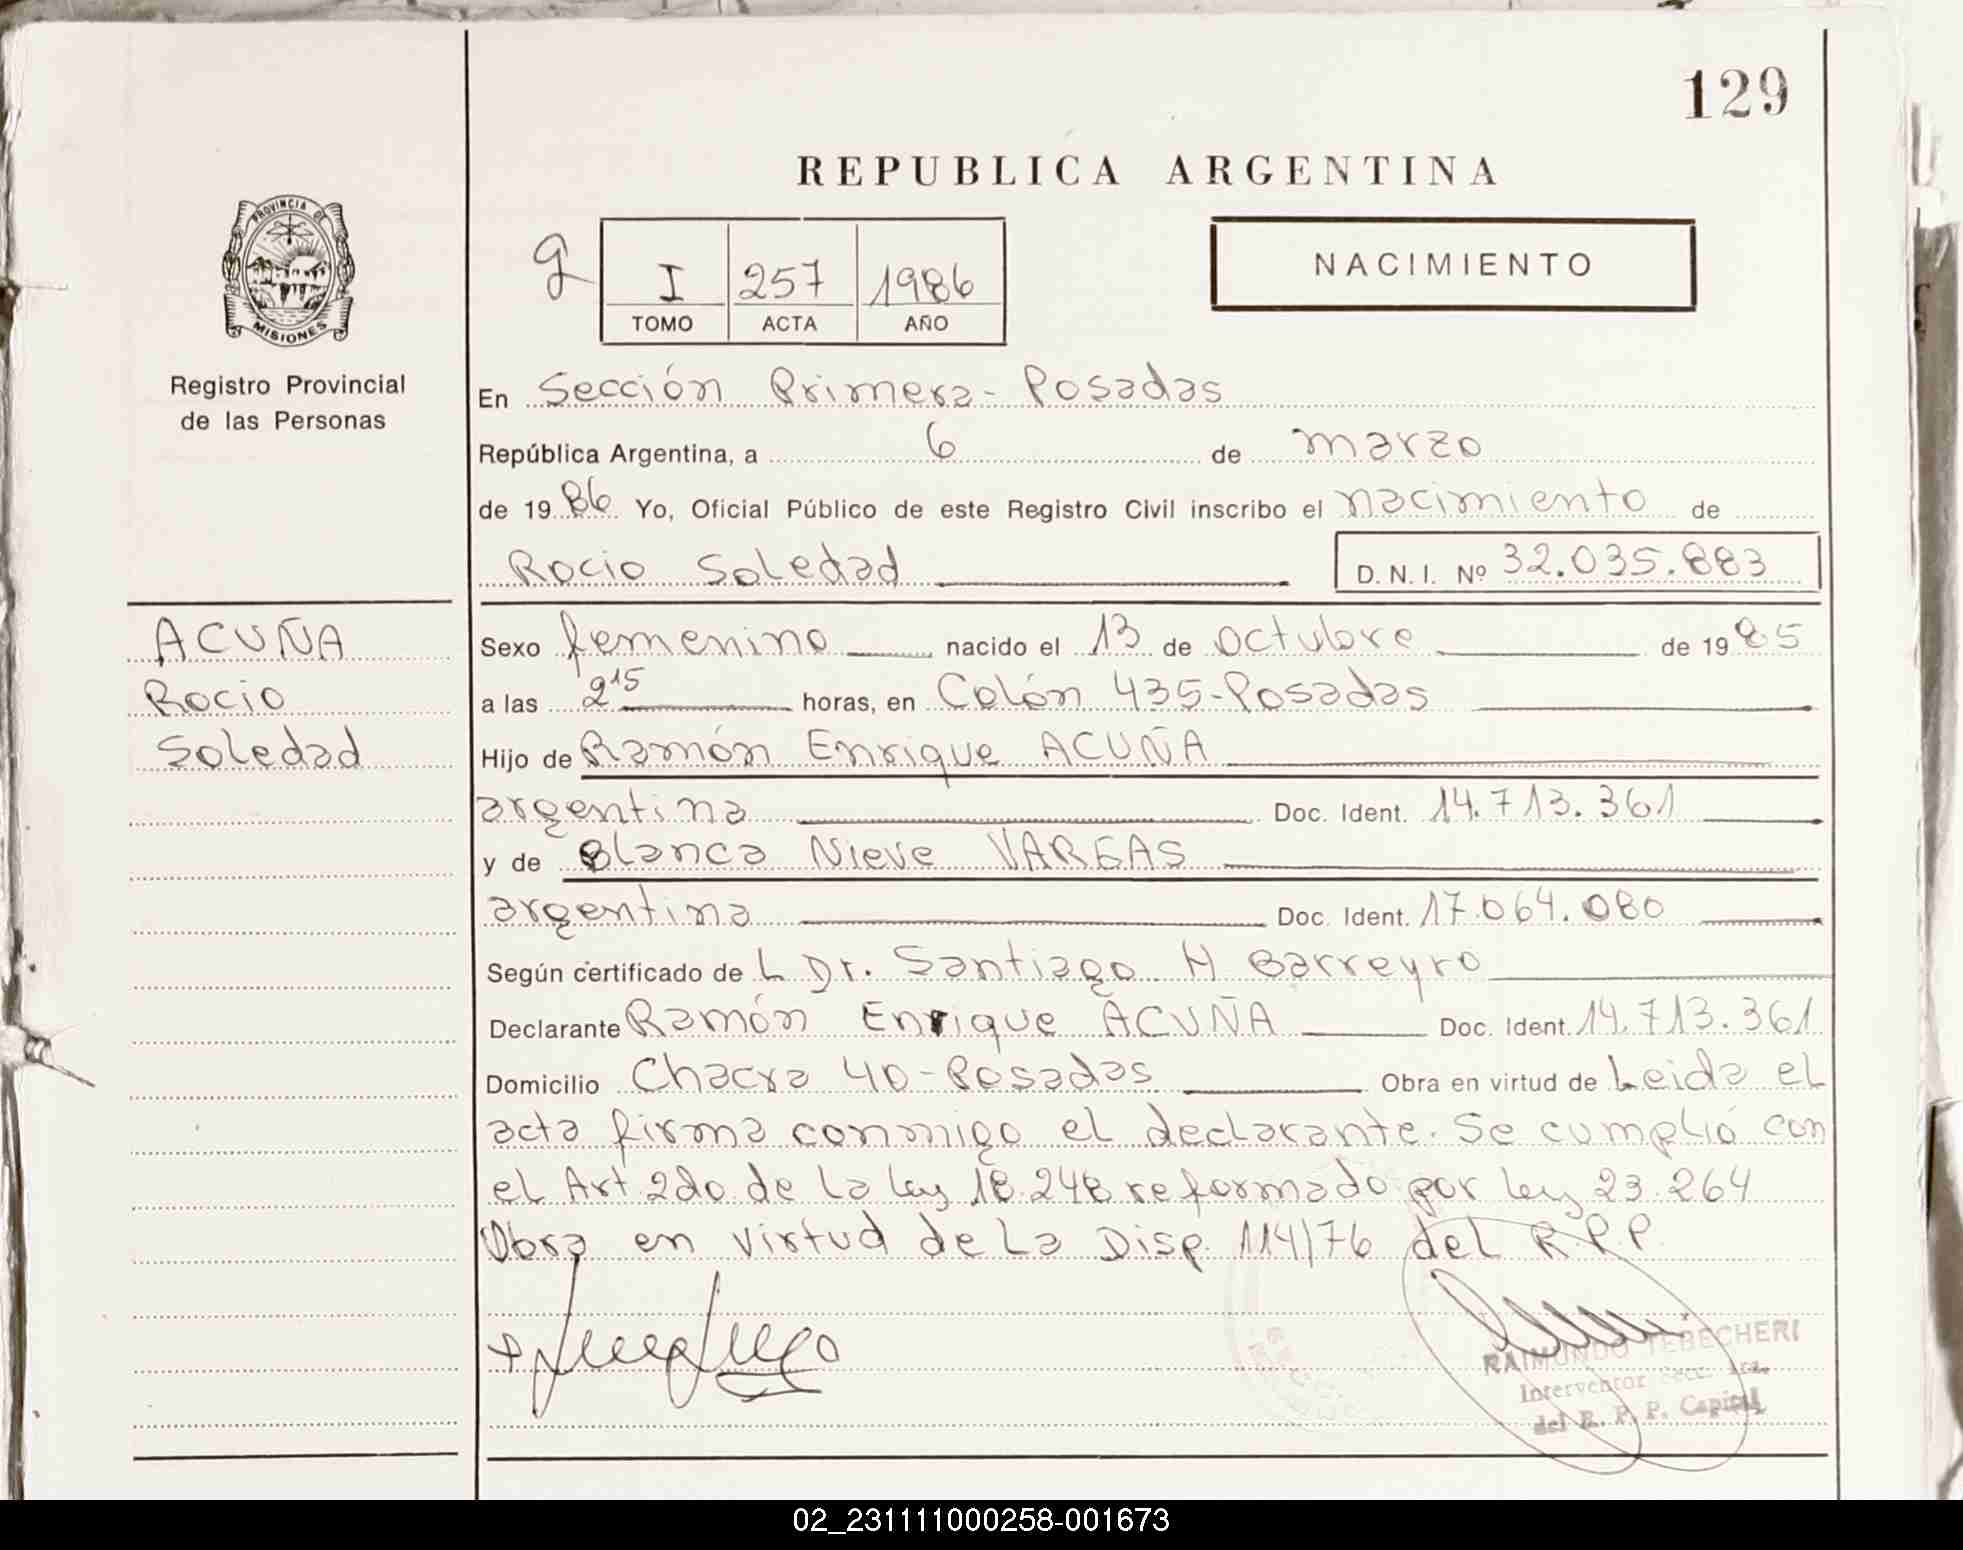 129
REPUBLICA ARGENTINA
PROVINCIA DE
MISIONES
Registro Provincial
de las Personas
g
I 257 1986
TOMO ACTA AÑO
NACIMIENTO
En Sección Primera - Posadas
República Argentina, a 6 de marzo
de 1986 Yo, Oficial Público de este Registro Civil inscribo el nacimiento de
Rocio Soledad D. N. I. Nº 32.035.883
ACUÑA
Rocio
Soledad
Sexo femenino nacido el 13 de octubre de 1985
a las 2 15 horas, en Colón 435-Posadas
Hijo de Ramón Enrique ACUÑA
argentina Doc. Ident. 14.713.361
y de Blanca Nieve VARGAS
argentina Doc. Ident. 17.064.080
Según certificado de L Dr. Santiago H Barreyro
Declarante Ramón Enrique ACUÑA Doc. Ident. 14.713.361
Domicilio Chacra 40-Posadas Obra en virtud de Leida el
acta firma conmigo el declarante. Se cumplió con
el Art 2do de la ley 18.248 reformado por ley 23.264
Obra en virtud de la Disp. 114/76 del R.P.P.
RAIMUNDO TEBECHERI
Interventor Secc. 1ra.
del R. P. P. Capital
02_231111000258-001673